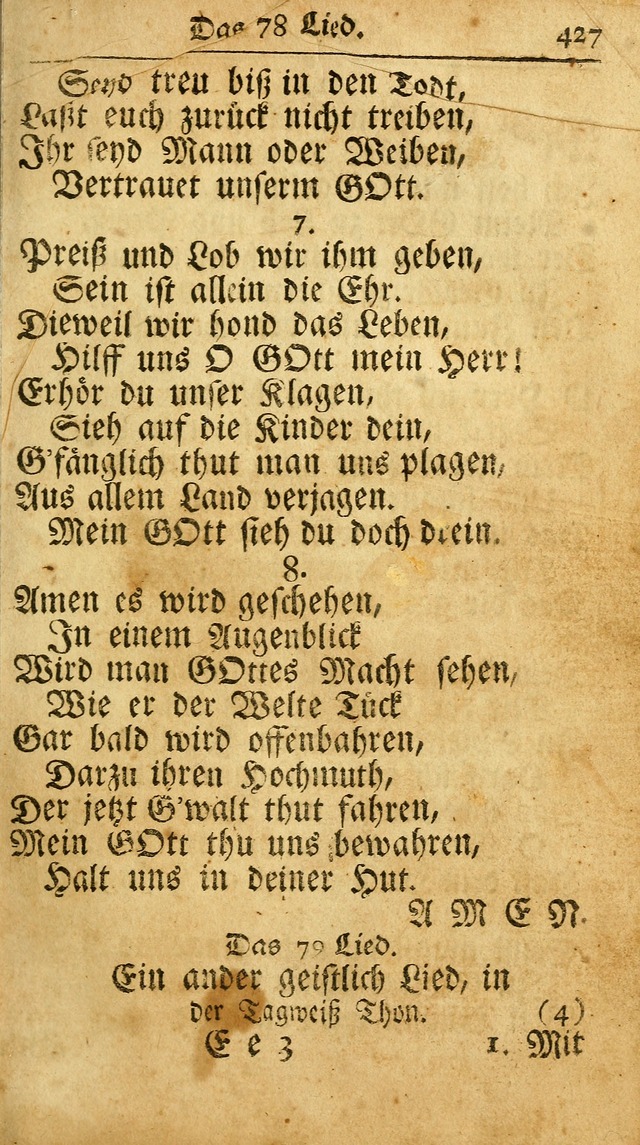 Das 78 Lied. 427
Seyd treu biß in den Todt,
Laßt euch zurück nicht treiben,
Ihr seyd Mann oder Weiben,
Vertrauet unserm GOtt.
7.
Preiß und Lob wir ihm geben,
Sein ist allein die Ehr.
Dieweil wir hond das Leben,
Hilff uns O GOtt mein Herr!
Erhör du unser Klagen,
Sieh auf die Kinder dein,
G'fänglich thut man uns plagen,
Aus allem Land verjagen.
Mein GOtt sieh du doch drein.
8.
Amen es wird geschehen,
In einem Augenblick
Wird man GOttes Macht sehen,
Wie er der Welte Tück
Gar bald wird offenbahren,
Darzu ihren Hochmuth,
Der jetzt G'walt thut fahren,
Mein GOtt thu uns bewahren,
Halt uns in deiner Hut.
A M E N.
Das 79 Lied.
Ein ander geistlich Lied, in
der Tagweiß Thon. (4)
E e 3 1. Mit